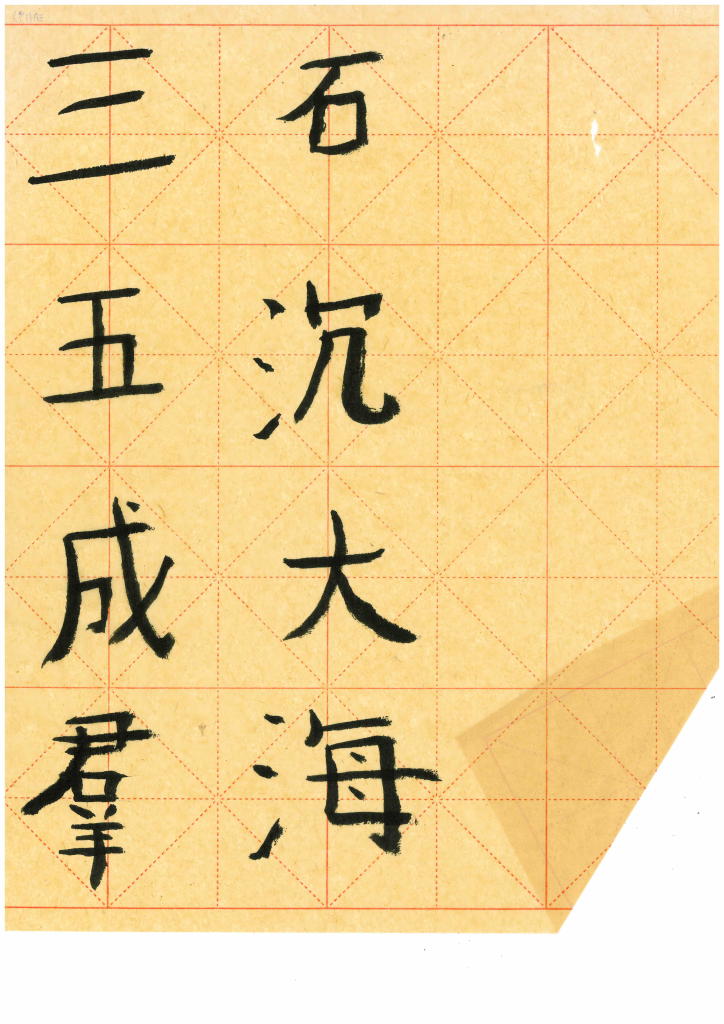 石沉大海
三五成羣